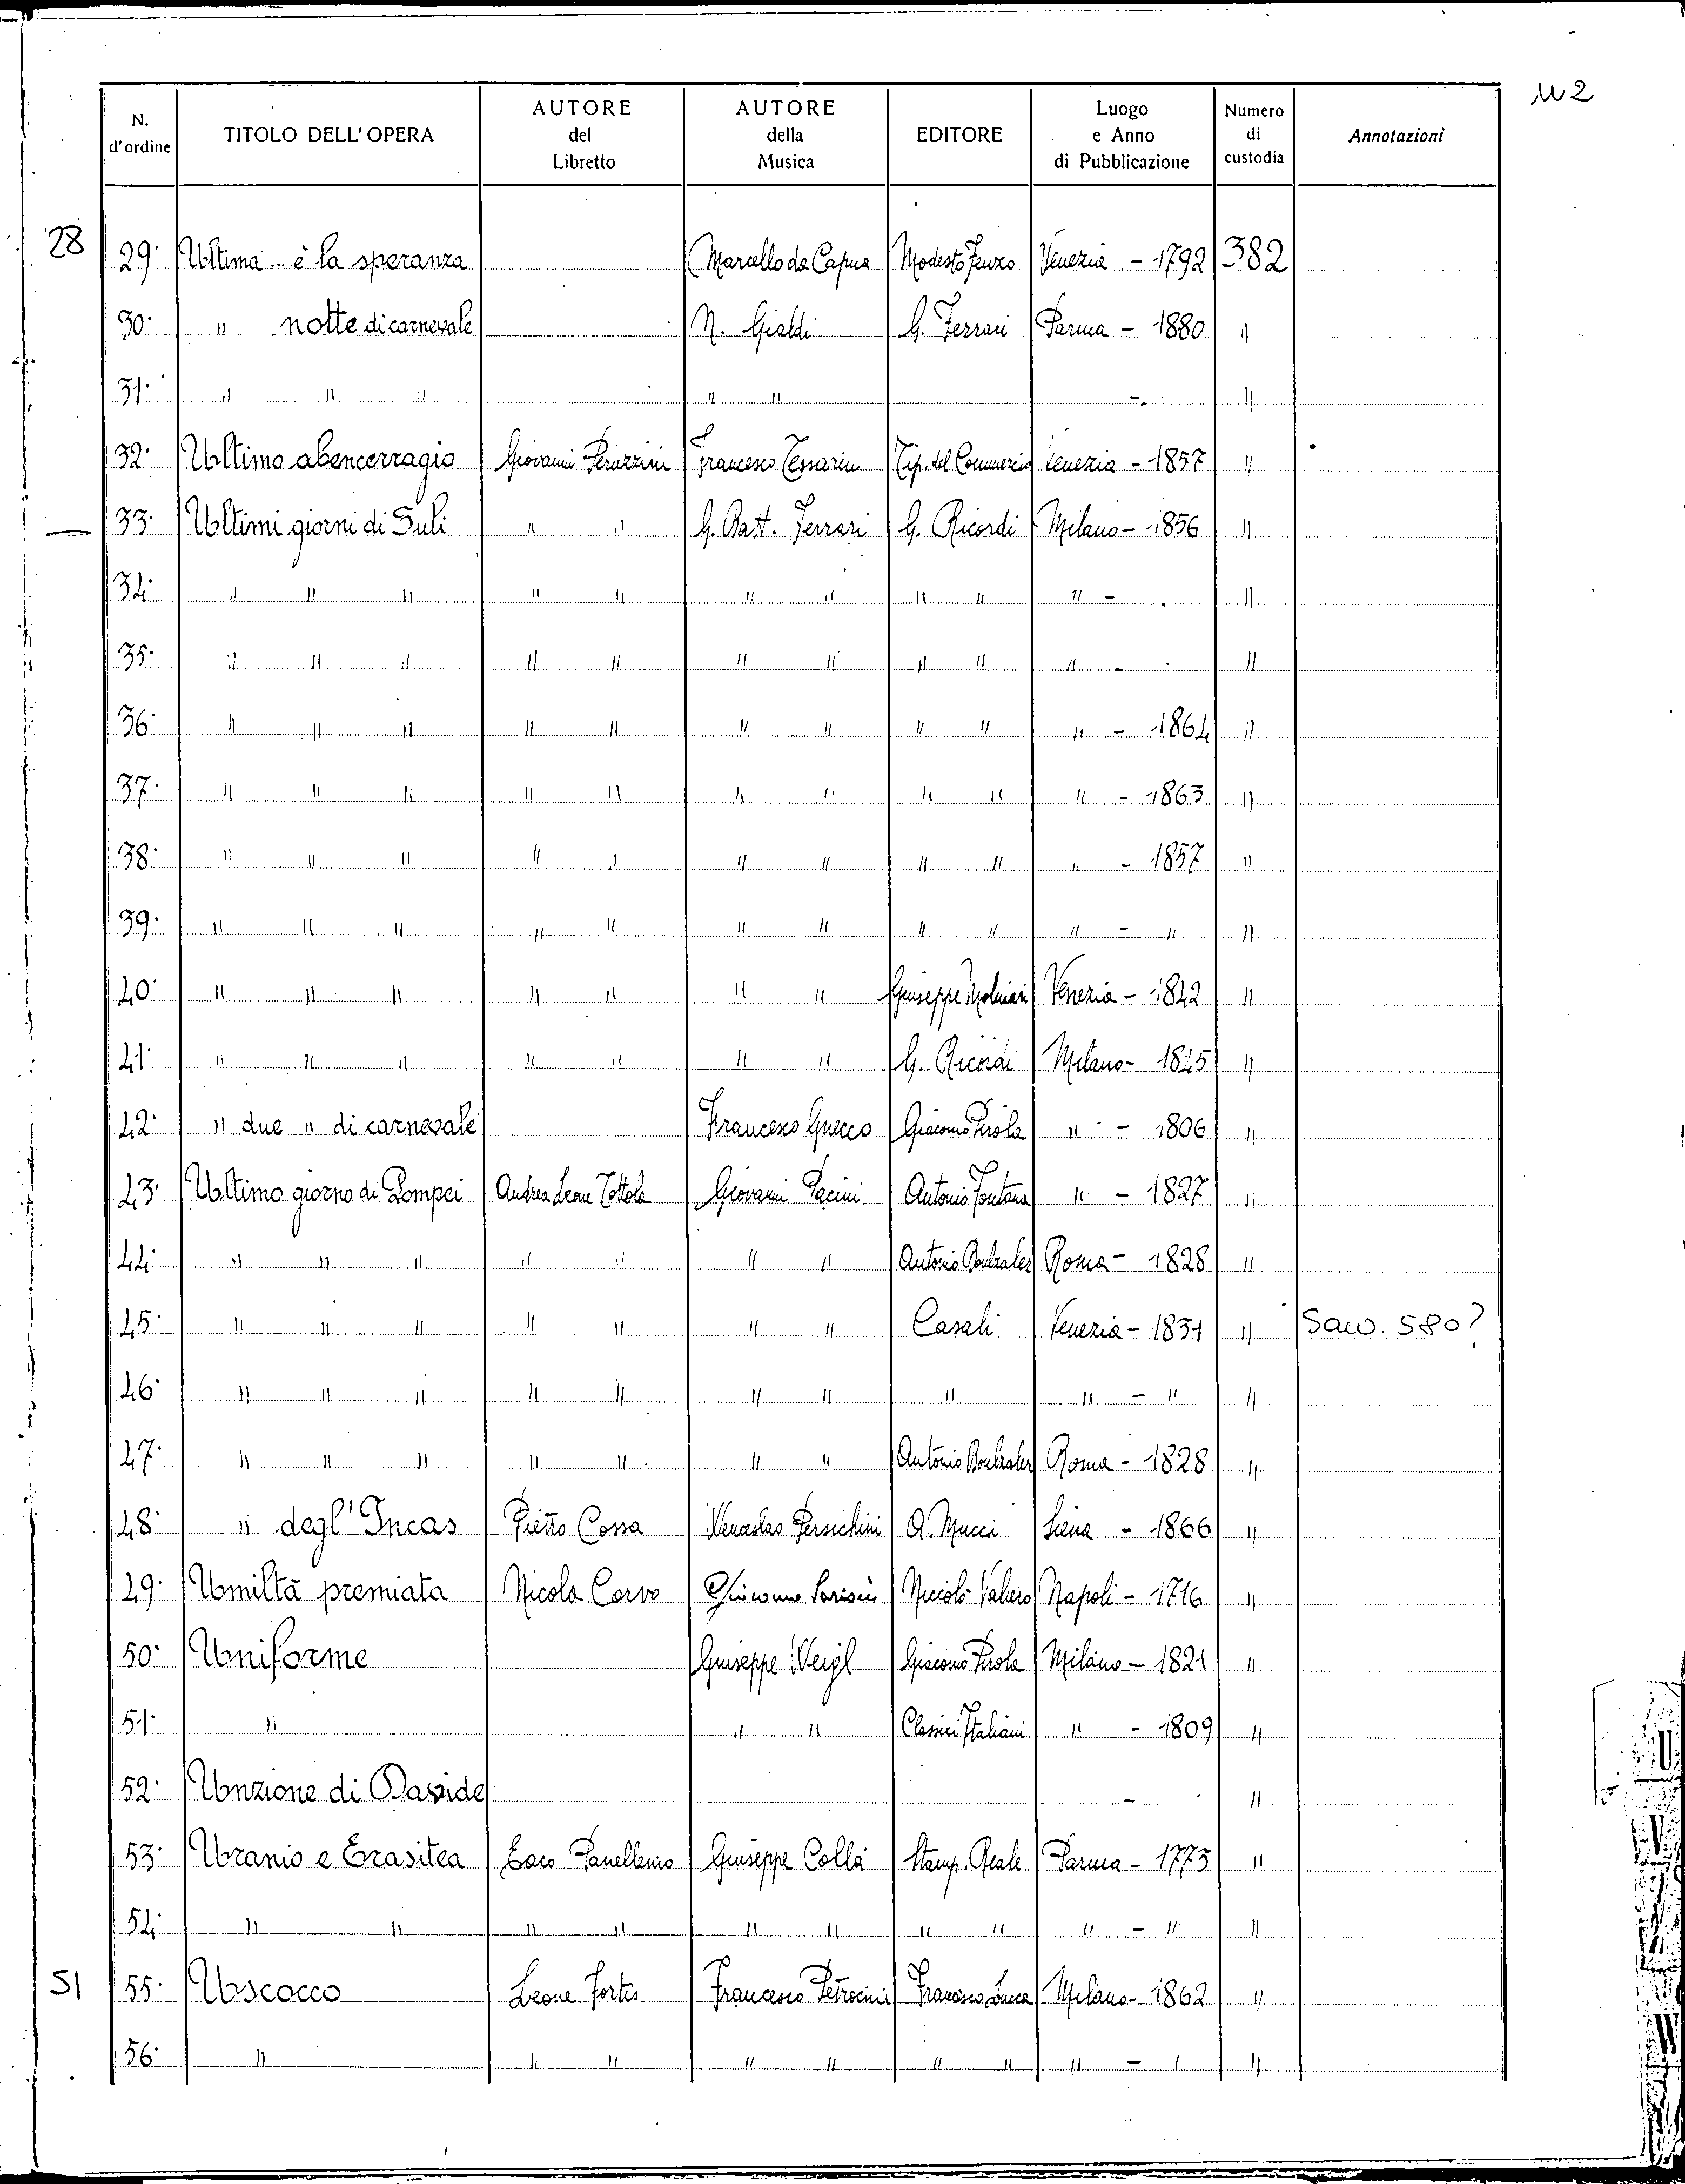 U 2
N. d'ordine | TITOLO DELL'OPERA | AUTORE del Libretto | AUTORE della Musica | EDITORE | Luogo e Anno di Pubblicazione | Numero di custodia | Annotazioni
28
29· | Ultima .. è la speranza | | Marcello da Capua | Modesto Fenzo | Venezia - 1792 | 382
30· | " notte di carnevale | | N. Gialdi | G. Ferrari | Parma - 1880 | "
31· | " " " | | " " | | - | "
32· | Ultimo abencerragio | Giovanni Peruzzini | Francesco Tessarin | Tip. del Commercio | Venezia - 1857 | "
33· | Ultimi giorni di Suli | " " | G. Batt. Ferrari | G. Ricordi | Milano - 1856 | "
34· | " " " | " " | " " | " " | " - | "
35· | " " " | " " | " " | " " | " - | "
36· | " " " | " " | " " | " " | " - 1864 | "
37· | " " " | " " | " " | " " | " - 1863 | "
38· | " " " | " " | " " | " " | " - 1857 | "
39· | " " " | " " | " " | " " | " - " | "
40· | " " " | " " | " " | Giuseppe Molinari | Venezia - 1842 | "
41· | " " " | " " | " " | G. Ricordi | Milano - 1845 | "
42· | " due " di carnevale | | Francesco Gnecco | Giacomo Pirola | " - 1806 | "
43· | Ultimo giorno di Pompei | Andrea Leone Tottola | Giovanni Pacini | Antonio Fontana | " - 1827 | "
44· | " " " | " " | " " | Antonio Boulzaler | Roma - 1828 | "
45· | " " " | " " | " " | Casali | Venezia - 1831 | " | Saw. 580?
46· | " " " | " " | " " | " | " - " | "
47· | " " " | " " | " " | Antonio Boulzaler | Roma - 1828 | "
48· | " degl' Incas | Pietro Cossa | Venceslao Persichini | A. Mucci | Siena - 1866 | "
49· | Umiltà premiata | Nicola Corvo | Giacomo | Niccolò Valiero | Napoli - 1716 | "
50· | Uniforme | | Giuseppe Weigl | Giacomo Pirola | Milano - 1821 | "
51· | " | | " " | Classici Italiani | " - 1809 | "
52· | Unzione di Davide | | | | - | "
53· | Uranio e Erasitea | Eaco Panellenio | Giuseppe Colla | Stamp. Reale | Parma - 1773 | "
54· | " " | " " | " " | " " | " - " | "
51
55· | Uscocco | Leone Fortis | Francesco Petrocini | Francesco Lucca | Milano - 1862 | "
56· | " | " " | " " | " " | " - " | "